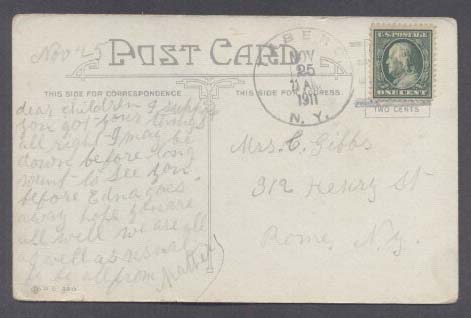 Nov 25
POST CARD
THIS SIDE FOR CORRESPONDENCE
THIS SIDE FOR ADDRESS
BERG
NOV
25
11 AM
1911
N. Y.
U.S. POSTAGE
ONE CENT
TWO CENTS
dear children I suppose
you got your things
all right I may be
down before long
want to see you
before Edna goes
away hope you are
all well we are all
as well as usual
from Mother
Mrs. C. Gibbs
312 Henry St
Rome, N.Y.